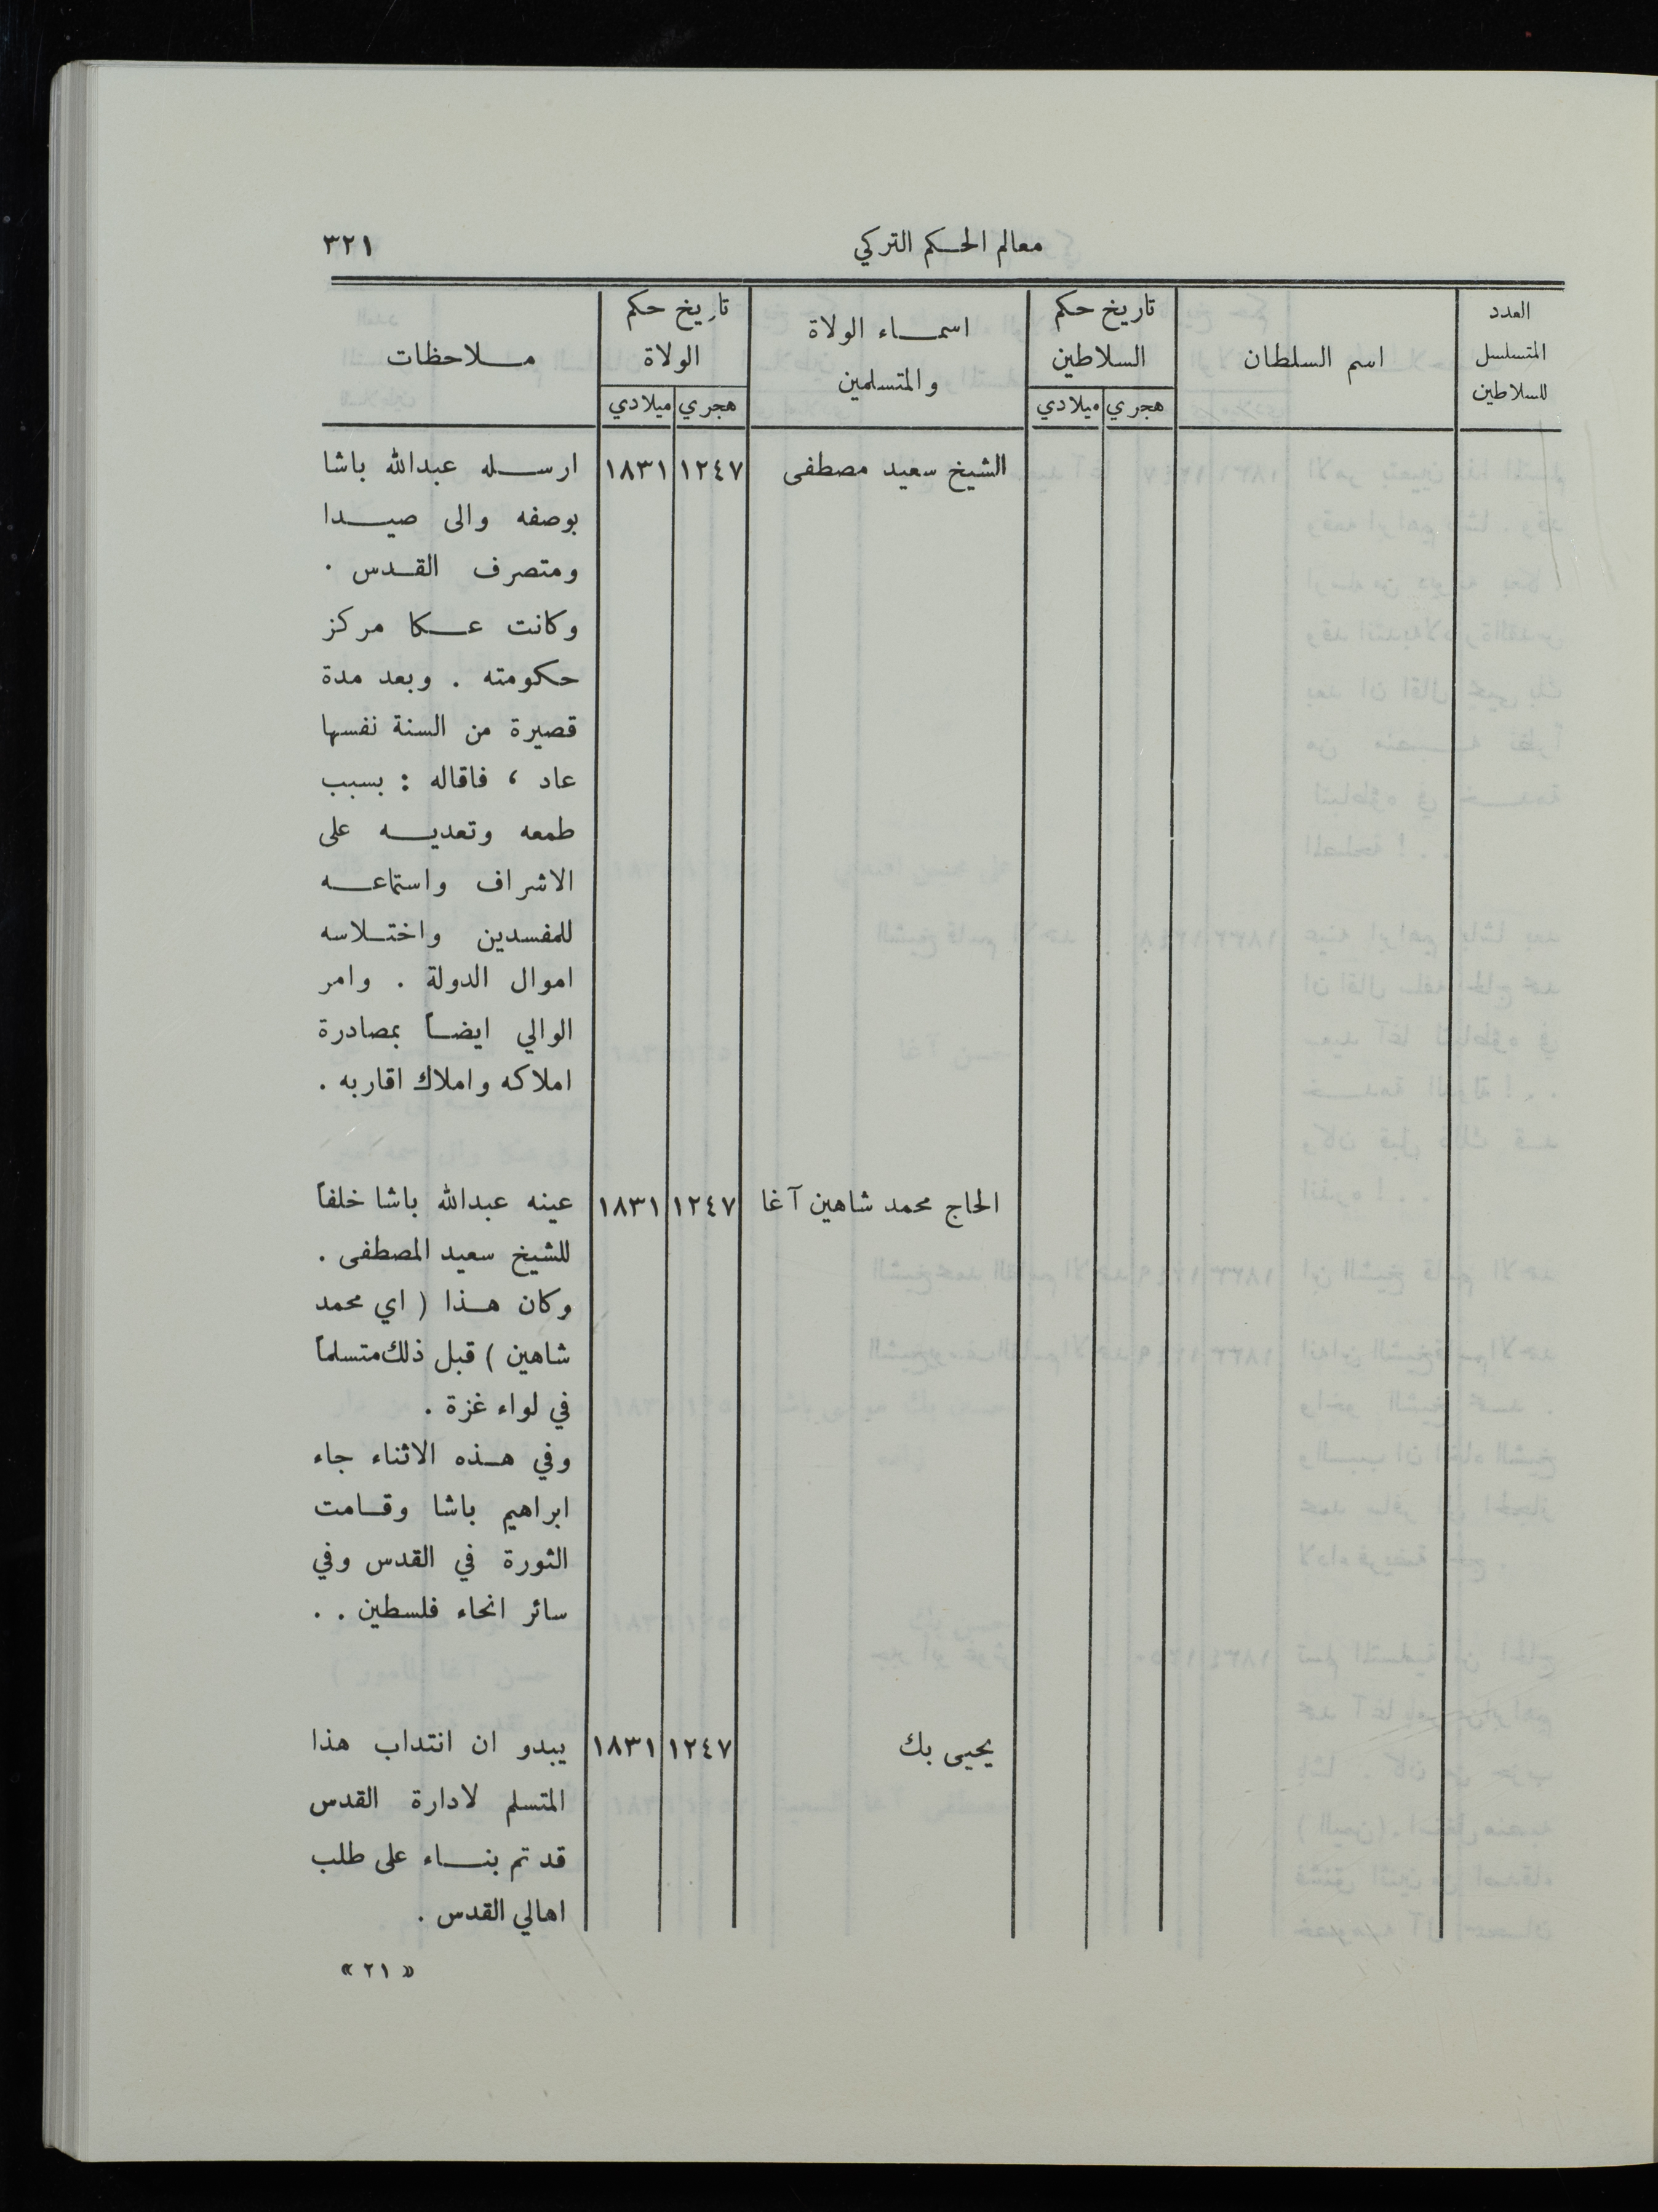 معالم الحكم التركي
٣٢١
العدد المتسلسل للسلاطين
اسم السلطان
تاريخ حكم السلاطين
هجري ميلادي
اسماء الولاة والمتسلمين
تاريخ حكم الولاة
هجري ميلادي
ملاحظات
الشيخ سعيد مصطفى ١٢٤٧ ١٨٣١ ارسله عبدالله باشا
بوصفه والى صيدا
ومتصرف القدس .
وكانت عكا مركز
حكومته . وبعد مدة
قصيرة من السنة نفسها
عاد ، فاقاله : بسبب
طمعه وتعديه على
الاشراف واستماعه
للمفسدين واختلاسه
اموال الدولة . وامر
الوالي ايضاً بمصادرة
املاكه واملاك اقاربه .
الحاج محمد شاهين آغا ١٢٤٧ ١٨٣١ عينه عبدالله باشا خلفاً
للشيخ سعيد المصطفى .
وكان هذا ( اي محمد
شاهين ) قبل ذلك متسلماً
في لواء غزة .
وفي هذه الاثناء جاء
ابراهيم باشا وقامت
الثورة في القدس وفي
سائر انحاء فلسطين . .
يحيى بك ١٢٤٧ ١٨٣١ يبدو ان انتداب هذا
المتسلم لادارة القدس
قد تم بناء على طلب
اهالي القدس .
« ٢١ »